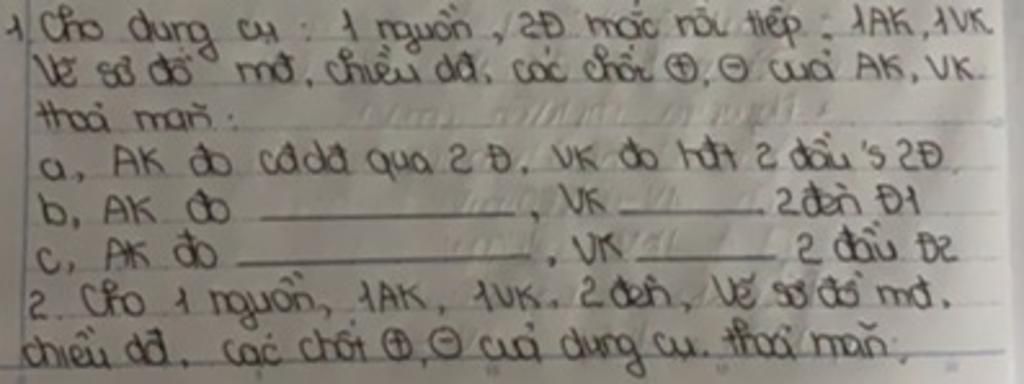 1. Cho dụng cụ : 1 nguồn, 2Đ mắc nối tiếp, 1AK, 1VK
Vẽ sơ đồ mđ, chiều dđ, các chốt ⊕, ⊖ của AK, VK
thoả mãn :
a, AK đo cđdđ qua 2 Đ, VK đo hđt 2 đầu 's 2Đ
b, AK đo ________, VK ________ 2 đèn Đ1
c, AK đo ________, VK ________ 2 đầu Đ2
2. Cho 1 nguồn, 1AK, 1VK, 2 đèn, Vẽ sơ đồ mđ,
chiều dđ, các chốt ⊕, ⊖ của dụng cụ. thoả mãn: